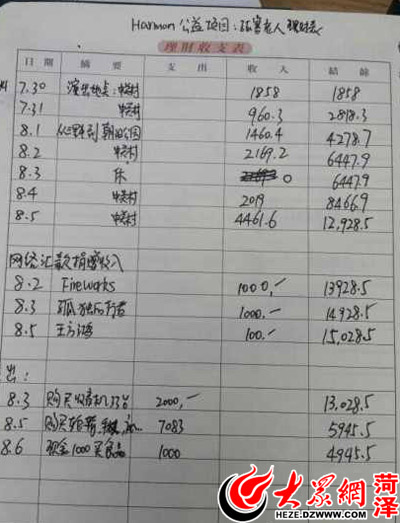 Harmon 公益项目：残害老人 理财表
理財收支表
日期 摘要 支出 收入 結餘
7.30 演出地点：中关村 1858 1858
7.31 中关村 960.3 2818.3
8.1 朝阳公园 1460.4 4278.7
8.2 中关村 2169.2 6447.9
8.3 乐 0 6447.9
8.4 中关村 2019 8466.9
8.5 中关村 4461.6 12,928.5
网络汇款捐赠收入
8.2 Fireworks 1000,— 13928.5
8.3 孤独的行者 1000.— 14928.5
8.5 100.— 15,028.5
出：
8.3 购买收音机 2000,— 13,028.5
8.5 购买轮椅 7083 5945.5
8.6 现金1000买食品 1000 4945.5
大众網 菏泽
HEZE.DZWWW.COM